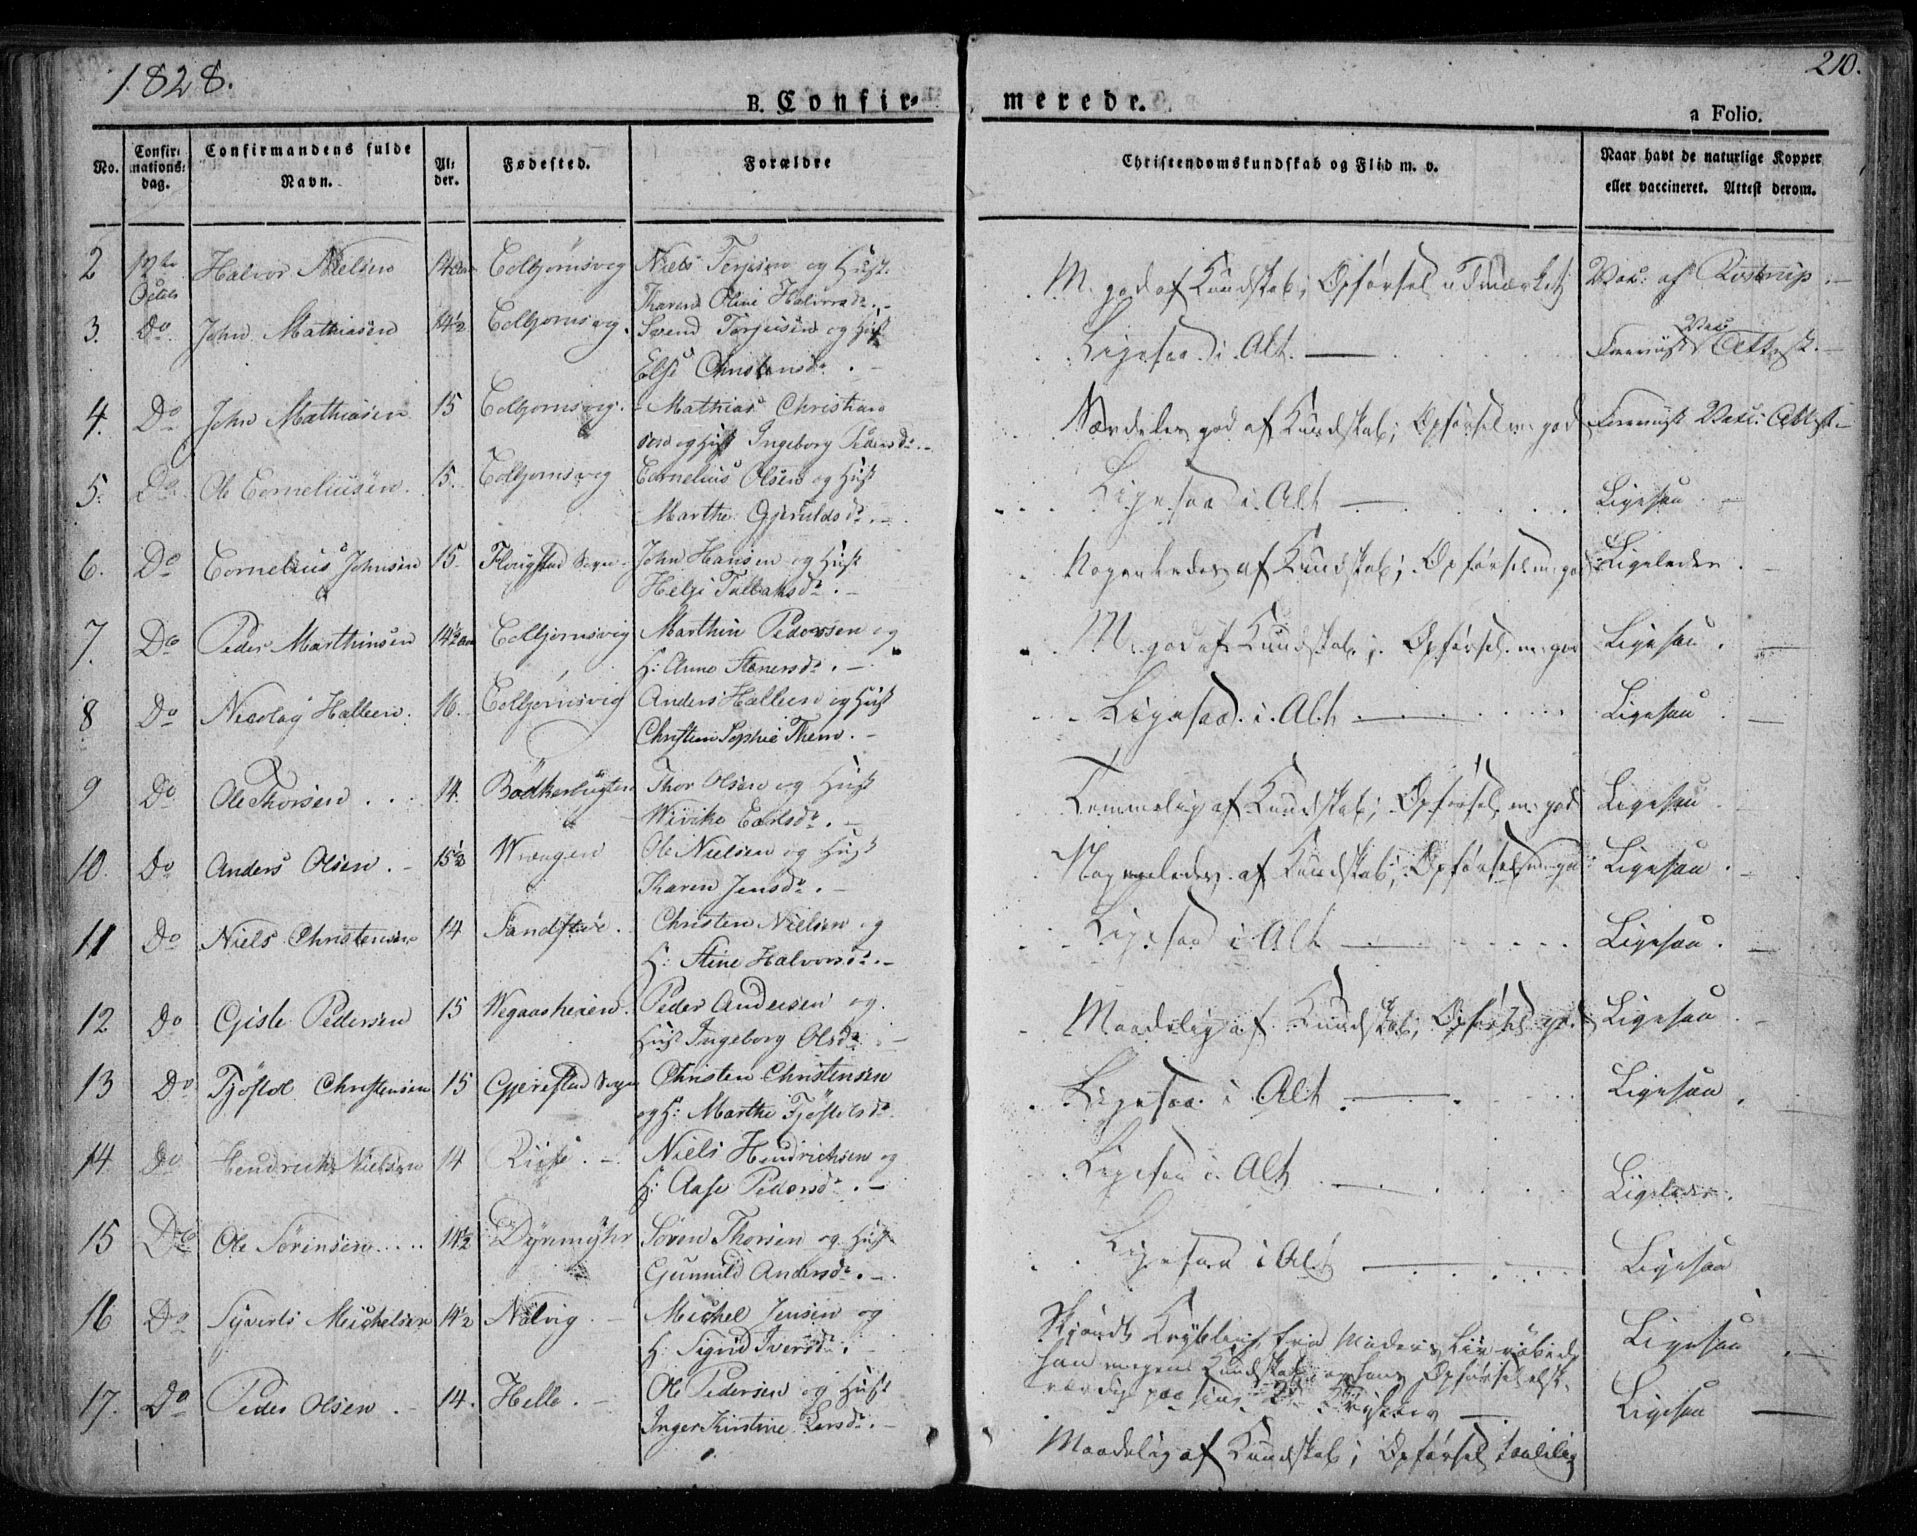 1828.
210.
B. Confir-
merede.
a Folio.
No.
Confir-
mations-
dag.
Confirmandens fulde
Navn.
Al-
der.
Fødested.
Forældre
Christendomskundskab og Flid m. v.
Naar havt de naturlige Kopper
eller vaccineret. Attest derom.
2 Halvor Nielsen Colbjørnsvig Niels Terjesen og Hust.
Karen Oline Halvorsdr.
M. god af Kundskab; Opførsel udmærket Vac: af Rostrup.
3. Do John Mathiasen 14½ Colbjørnsvig. Svend Torjusen og Hust
Else Christensdr.
Ligesaa i Alt. Foreviist Vac Attest.
4. Do John Mathiasen 15 Colbjørnsvig. Mathias Christian
sen og Hust Ingeborg Pedersdr.
Særdeles god af Kundskab; Opførsel m. god Foreviist Vacc: Attest
5. Do Ole Corneliusen. 15. Colbjørnsvig Cornelius Olsen og Hust
Marthe Gjeruldsdr.
Ligesaa i Alt Ligesaa.
6. Do Cornelius Johnsen 15 Sogn John Hansen og Hust
Helje
Nogenledes af Kundskab; Opførsel m: god Ligeledes.
7. Do Peder Marthinsen 14½ Colbjørnsvig Marthin Pedersen og
H: Anne
M. god af Kundskab; Opførsel m: god Ligesaa.
8 Do Nicolay Halleen. 16. Colbjørnsvig Anders Halleen og Hust
Christine Sophie Them.
Ligesaa i Alt Ligesaa
9 Do Ole Thorsen 14. Bødkerbugten Thor Olsen og Hust
Wivike Carlsdr.
Temmelig af Kundskab; Opførsel m: god Ligesaa
10. Do Anders Olsen. 15½ Wrængen Ole Nielsen og Hust
Karen Jensdr.
Nogenledes af Kundskab; Opførsel m. god Ligesaa.
11 Do Niels Christensen 14 Christen Nielsen og
H: Stine Halvorsdr.
Ligesaa i Alt Ligesaa.
12 Do Gisle Pedersen 15 Wegaasheien. Peder Andersen og
Hust Ingeborg Olsdr
Maadelig af Kundskab; Opførsel god Ligesaa
13 Do Tjøstol Christensen 15 Gjerestad Sogn Christen Christensen
og H: Marthe Tjøstolsdr.
Ligesaa i Alt Ligesaa
14 Do Hendrich Nielsen 14 Niels Hendrichsen og
H: Aase Pedersdr.
Ligesaa i Alt Ligeledes.
15 Do Ole Sørensen 14½ Dynmyhr Søren Thorsen og Hust
Gunnild Andersdr.
Ligesaa i Alt Ligesaa
16 Do Syvert Michelsen 14½ Nalvig Michel Jensen og
H: Sigrid Iversdr.
Skjøndt Krybling fra Moders Liv
han megen Kundskab; og hans Opførsel elsk-
værdig
Ligesaa
17. Do Peder Olsen 14. Helle. Ole Pedersen og Hust
Inger Kirstine Larsdr.
Maadelig af Kundskab; Opførsel taalelig
Ligesaa